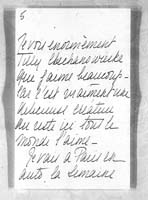 5
Je vois énormément
Tilly
que j'aime beaucoup -
car c'est vraiment une
délicieuse créature
du reste ici tout le
monde l'aime -
Je vais à Paris en
auto la semaine